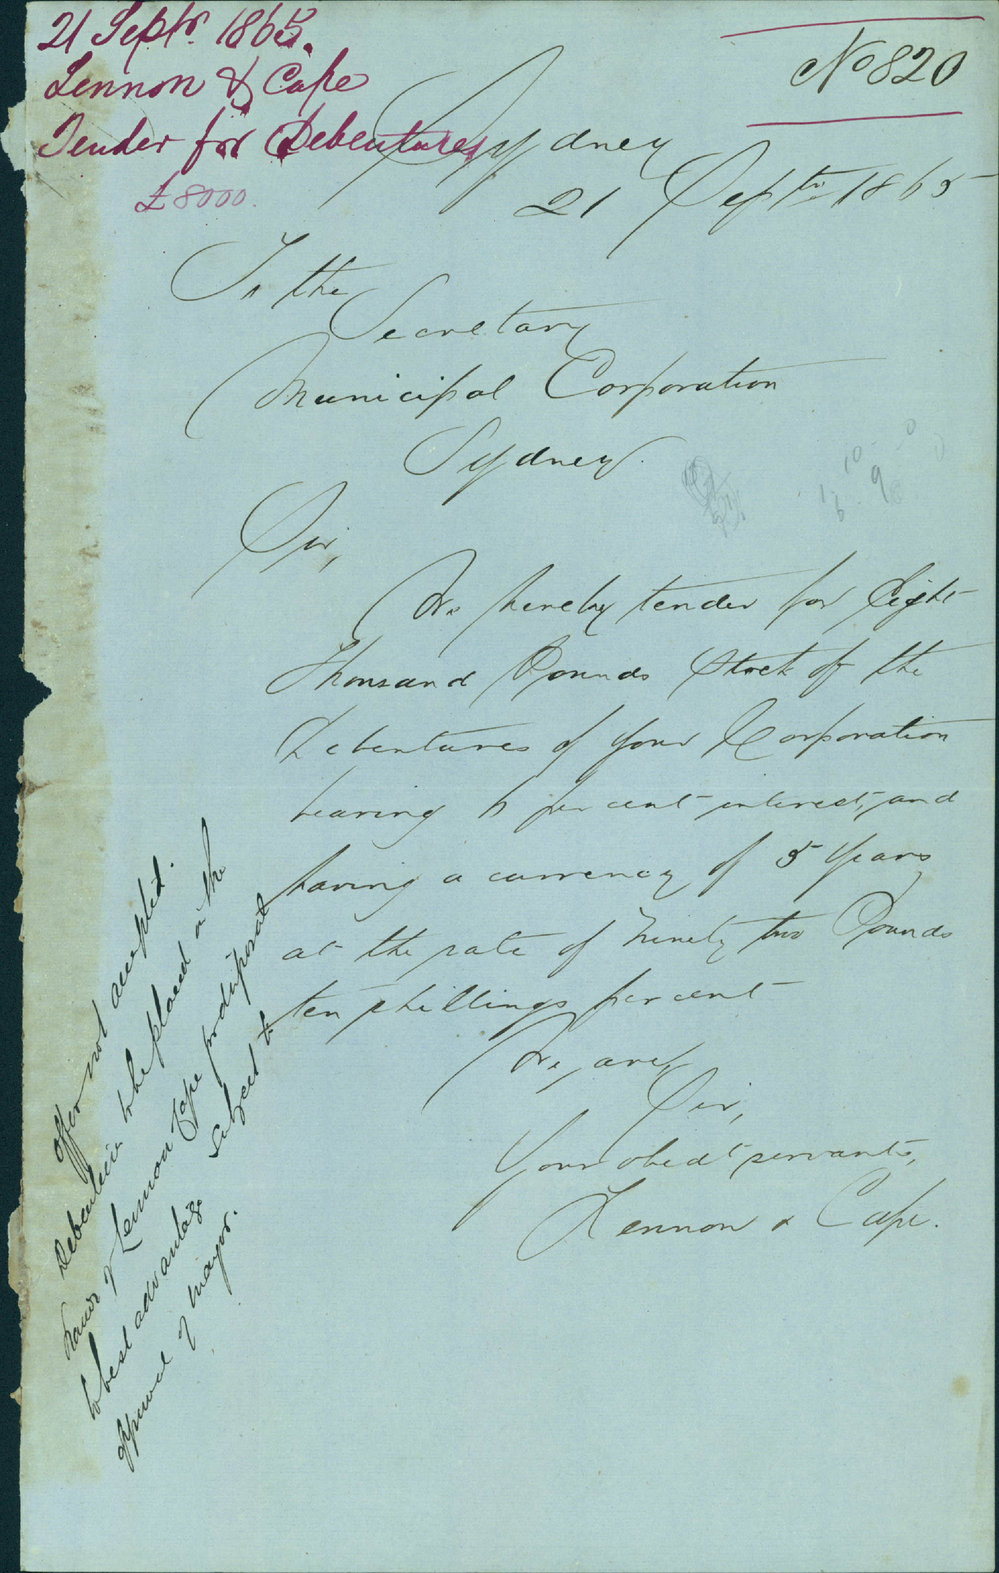 21 Septr. 1865.
Lennon & Cape
Tender for Debentures
£8000.
No 820
Sydney
21 Septr 1865
To the
Secretary
Municipal Corporation
Sydney.
Sir,
We hereby tender for Eight
Thousand Pounds Stock of the
Debentures of your Corporation
bearing 6 per cent interest, and
having a currency of 5 years
at the rate of Ninety two Pounds
ten shillings per cent
We are,
Sir,
Your obedt servants,
Lennon & Cape.
Offer not accepted.
Debentures to be placed in the
hands of Lennon & Cape
to best advantage subject to
approval of Mayor.